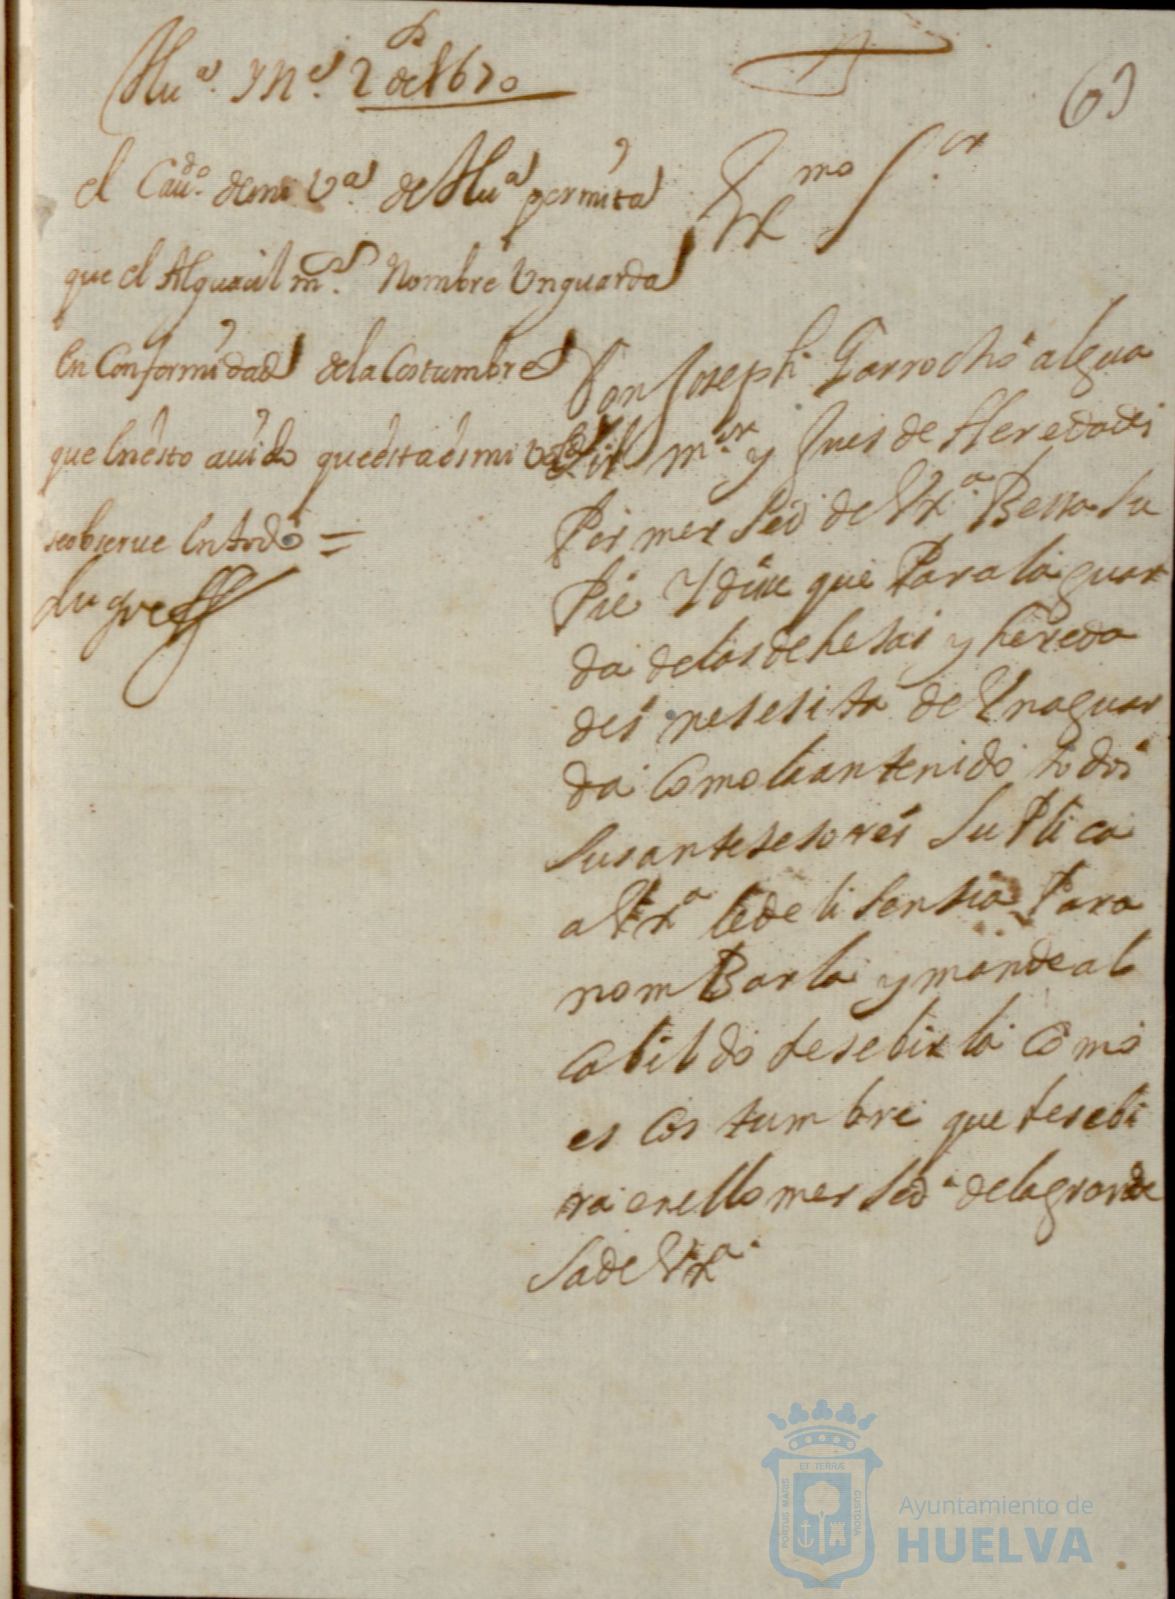 Huª. y Nº. 2 de 1670
el Cauº. de mi Vª de Huª permita
que el Alguacil mʳ. Nombre Un guarda
En Conformidad de la Costumbre
que En esto auido que esta es mi
se obserue En todo =
63
Exmo Sor
Don Joseph Garrocho algua
çil mor y Jues de Heredades
Por merSed de VExª. Bessa Su
Pie Y dise que Para la guar
da de las dehesas y hereda
des nesesita de Una guar
da como lo an tenido todos
Sus antesesores SuPlica
a VExª le de lisensia Para
nomBarla y mande al
Cabildo resebirla como
es Costumbre que resebi
ra en ello merSed de la grande
Sa de VExª.
ET TERRÆ
PORTUS MARIS
CUSTODIA
Ayuntamiento de
HUELVA